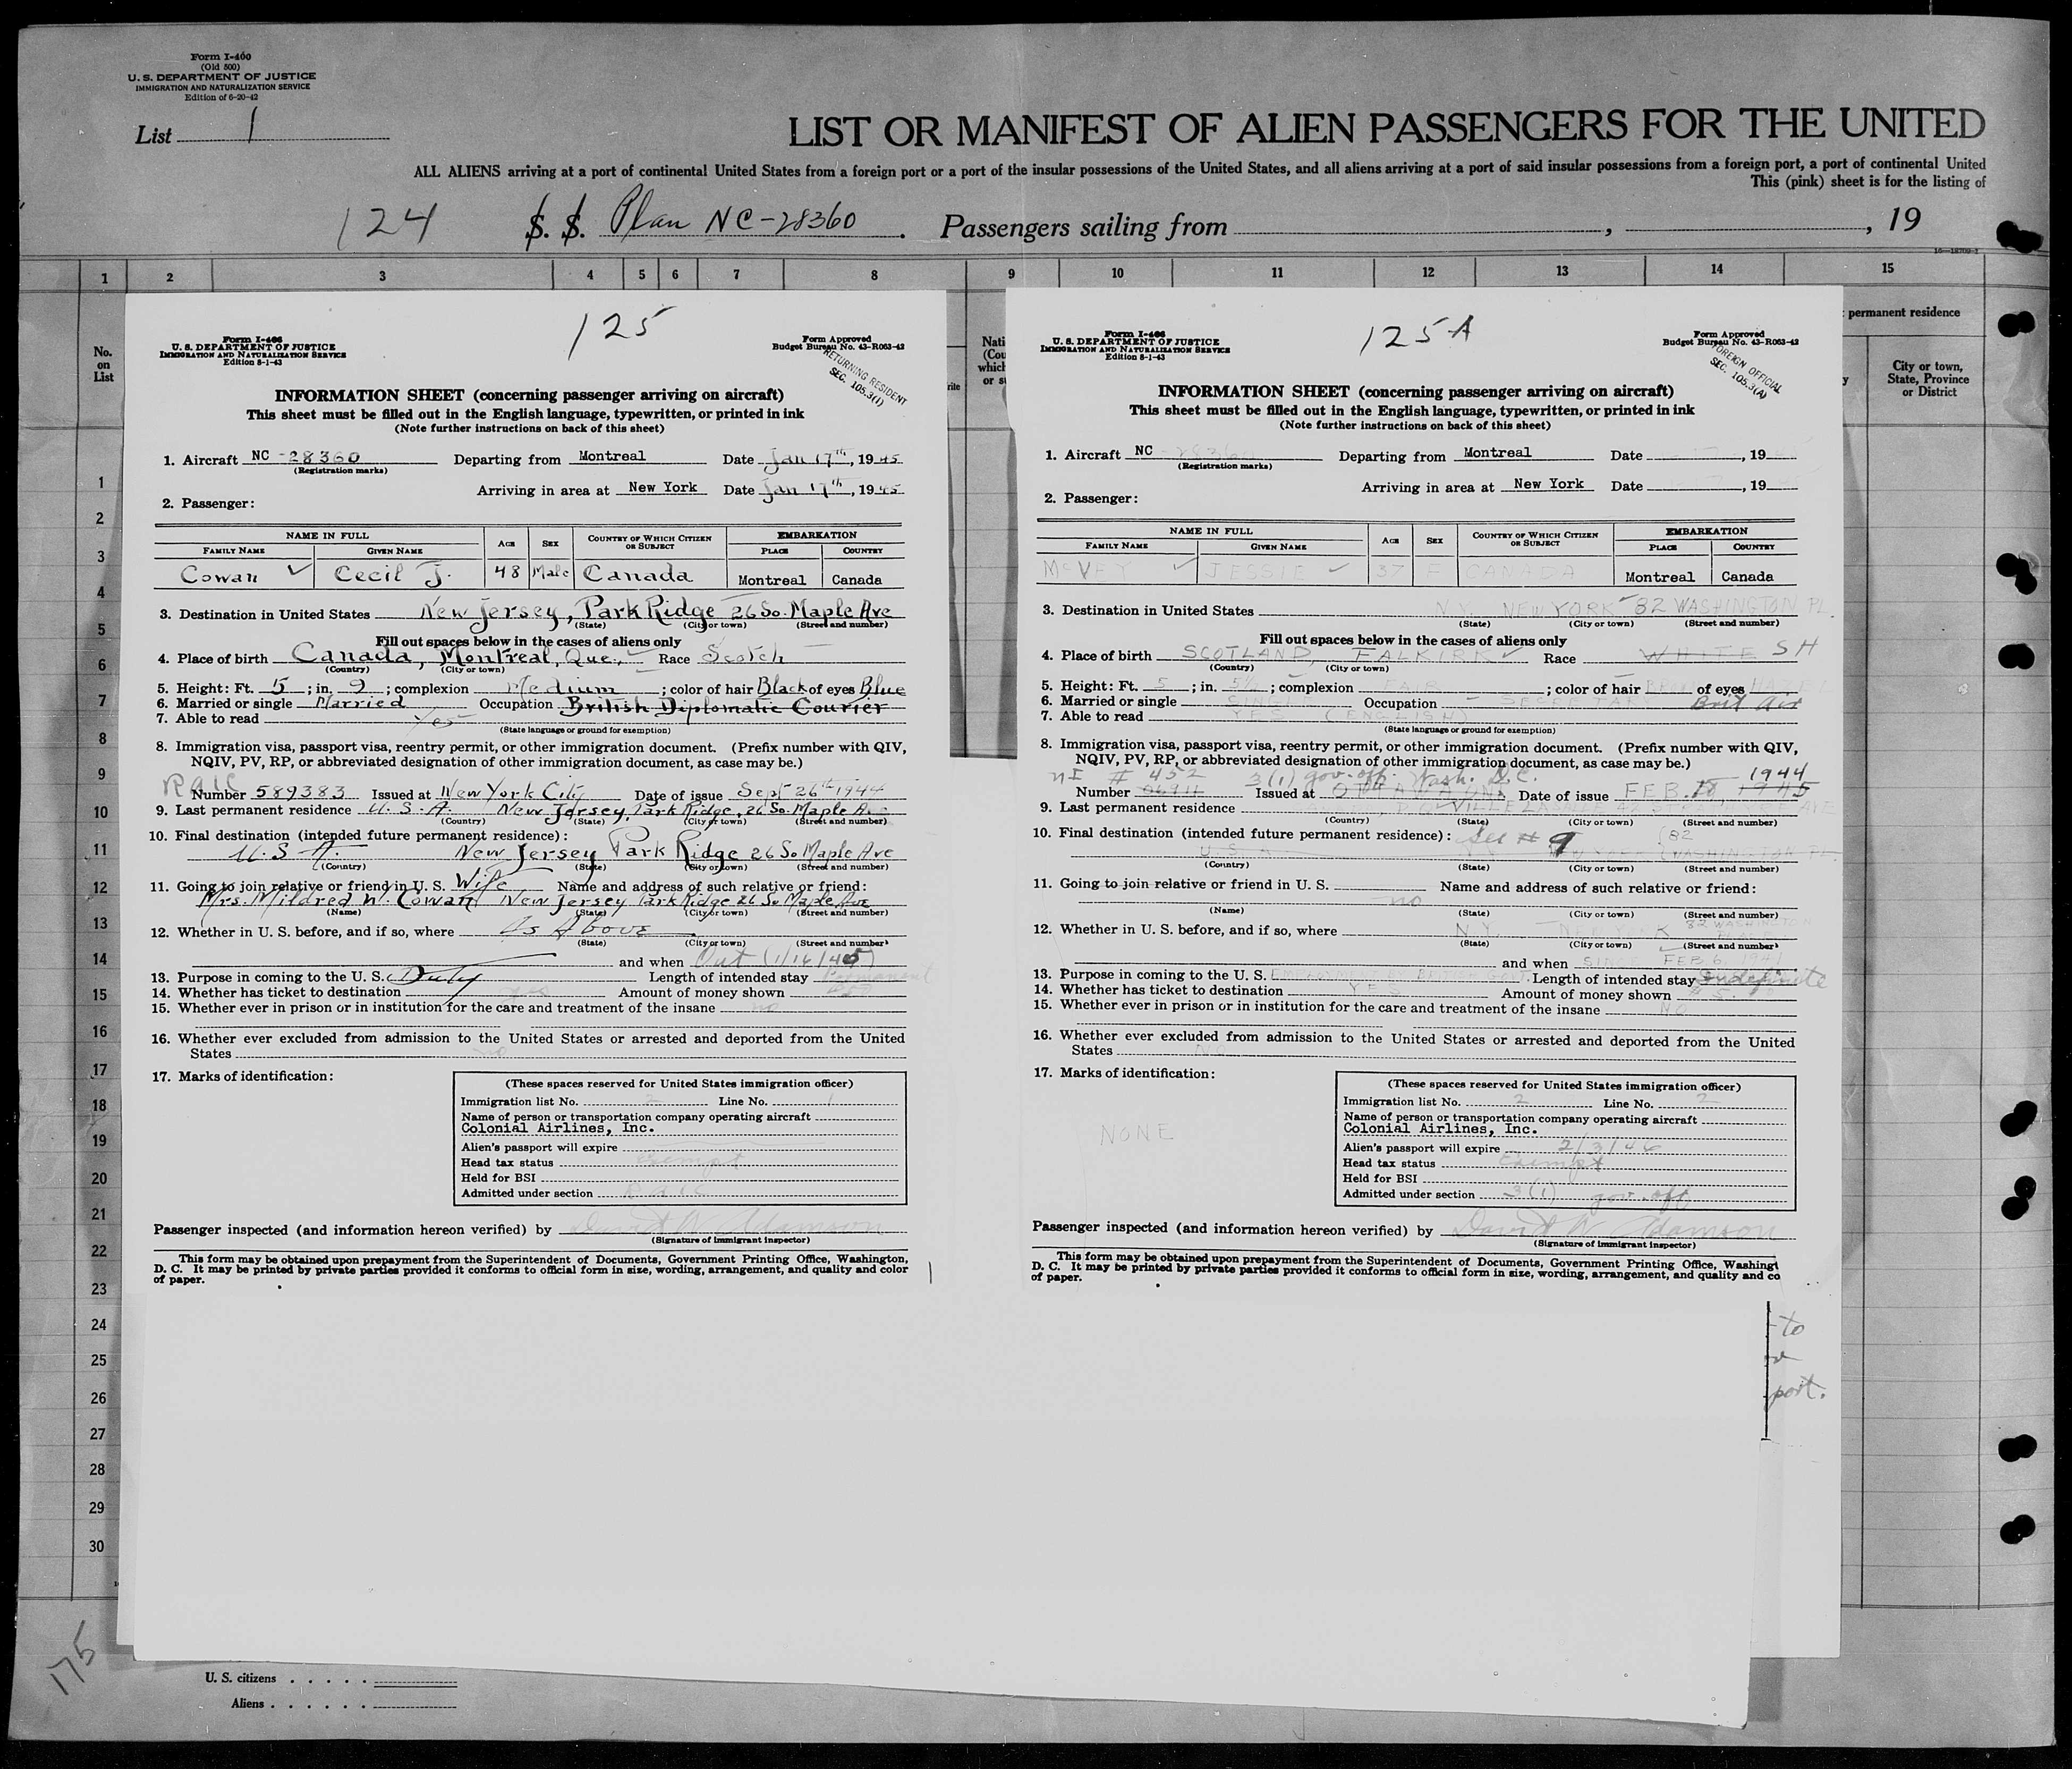 Form I-400
(Old 500)
U. S. DEPARTMENT OF JUSTICE
IMMIGRATION AND NATURALIZATION SERVICE
Edition of 6-20-42
List 1
LIST OR MANIFEST OF ALIEN PASSENGERS FOR THE UNITED
ALL ALIENS arriving at a port of continental United States from a foreign port or a port of the insular possessions of the United States, and all aliens arriving at a port of said insular possessions from a foreign port, a port of continental United
This (pink) sheet is for the listing of
124 S. S. Plan NC-28360. Passengers sailing from , , 19
1 2 3 4 5 6 7 8 9 10 11 12 13 14 15
No. on List
permanent residence
City or town, State, Province or District
125
Form I-466
U. S. DEPARTMENT OF JUSTICE
IMMIGRATION AND NATURALIZATION SERVICE
Edition 8-1-43
Form Approved
Budget Bureau No. 43-R063-42
RETURNING RESIDENT
SEC. 105.3(1)
INFORMATION SHEET (concerning passenger arriving on aircraft)
This sheet must be filled out in the English language, typewritten, or printed in ink
(Note further instructions on back of this sheet)
1. Aircraft NC-28360 Departing from Montreal Date Jan 17th, 1945
(Registration marks)
Arriving in area at New York Date Jan 17th, 1945
2. Passenger:
NAME IN FULL AGE SEX COUNTRY OF WHICH CITIZEN OR SUBJECT EMBARKATION
FAMILY NAME GIVEN NAME PLACE COUNTRY
Cowan Cecil J. 48 Male Canada Montreal Canada
3. Destination in United States New Jersey, Park Ridge 26 So. Maple Ave
(State) (City or town) (Street and number)
Fill out spaces below in the cases of aliens only
4. Place of birth Canada, Montreal, Que., Race Scotch
(Country) (City or town)
5. Height: Ft. 5; in. 9; complexion Medium; color of hair Black of eyes Blue
6. Married or single Married Occupation British Diplomatic Courier
7. Able to read Yes
(State language or ground for exemption)
8. Immigration visa, passport visa, reentry permit, or other immigration document. (Prefix number with QIV,
NQIV, PV, RP, or abbreviated designation of other immigration document, as case may be.)
RAIC
Number 589383 Issued at New York City Date of issue Sept 26th 1944
9. Last permanent residence U.S.A. New Jersey, Park Ridge, 26 So Maple Ave
(Country) (State) (City or town) (Street and number)
10. Final destination (intended future permanent residence):
U.S A. New Jersey Park Ridge 26 So Maple Ave
(Country) (State) (City or town) (Street and number)
11. Going to join relative or friend in U. S. Wife Name and address of such relative or friend:
Mrs. Mildred W. Cowan New Jersey Park Ridge 26 So Maple Ave
(Name) (State) (City or town) (Street and number)
12. Whether in U. S. before, and if so, where As Above
(State) (City or town) (Street and number)
and when Out (1/16/45)
13. Purpose in coming to the U. S. Duty Length of intended stay Permanent
14. Whether has ticket to destination yes Amount of money shown
15. Whether ever in prison or in institution for the care and treatment of the insane no
16. Whether ever excluded from admission to the United States or arrested and deported from the United
States no
17. Marks of identification:
(These spaces reserved for United States immigration officer)
Immigration list No. 2 Line No. 1
Name of person or transportation company operating aircraft
Colonial Airlines, Inc.
Alien's passport will expire
Head tax status exempt
Held for BSI
Admitted under section RAIC
Passenger inspected (and information hereon verified) by David W Adamson
(Signature of immigrant inspector)
This form may be obtained upon prepayment from the Superintendent of Documents, Government Printing Office, Washington,
D. C. It may be printed by private parties provided it conforms to official form in size, wording, arrangement, and quality and color
of paper.
125A
Form I-466
U. S. DEPARTMENT OF JUSTICE
IMMIGRATION AND NATURALIZATION SERVICE
Edition 8-1-43
Form Approved
Budget Bureau No. 43-R063-42
FOREIGN OFFICIAL
SEC. 105.3(A)
INFORMATION SHEET (concerning passenger arriving on aircraft)
This sheet must be filled out in the English language, typewritten, or printed in ink
(Note further instructions on back of this sheet)
1. Aircraft NC 28360 Departing from Montreal Date , 19
(Registration marks)
Arriving in area at New York Date , 19
2. Passenger:
NAME IN FULL AGE SEX COUNTRY OF WHICH CITIZEN OR SUBJECT EMBARKATION
FAMILY NAME GIVEN NAME PLACE COUNTRY
McVEY JESSIE 37 F CANADA Montreal Canada
3. Destination in United States N.Y. NEW YORK 82 WASHINGTON PL.
(State) (City or town) (Street and number)
Fill out spaces below in the cases of aliens only
4. Place of birth SCOTLAND, FALKIRK Race WHITE SH
(Country) (City or town)
5. Height: Ft. 5; in. 5½; complexion FAIR; color of hair BROWN of eyes
6. Married or single SINGLE Occupation SECRETARY Brit Air
7. Able to read YES (ENGLISH)
(State language or ground for exemption)
8. Immigration visa, passport visa, reentry permit, or other immigration document. (Prefix number with QIV,
NQIV, PV, RP, or abbreviated designation of other immigration document, as case may be.)
NI # 452 3(1) gov. off. Wash. D.C. 1944
Number Issued at Date of issue FEB. 18 1945
9. Last permanent residence
(Country) (State) (City or town) (Street and number)
10. Final destination (intended future permanent residence): See # 9 (82
U.S.A. WASHINGTON PL.
(Country) (State) (City or town) (Street and number)
11. Going to join relative or friend in U. S. Name and address of such relative or friend:
no
(Name) (State) (City or town) (Street and number)
12. Whether in U. S. before, and if so, where N.Y. NEW YORK 82 WASHINGTON
(State) (City or town) (Street and number)
and when SINCE FEB 6, 1941
13. Purpose in coming to the U. S. EMPLOYMENT BY BRITISH GOVT. Length of intended stay Indefinite
14. Whether has ticket to destination YES Amount of money shown
15. Whether ever in prison or in institution for the care and treatment of the insane NO
16. Whether ever excluded from admission to the United States or arrested and deported from the United
States NO
17. Marks of identification:
NONE
(These spaces reserved for United States immigration officer)
Immigration list No. 2 Line No. 2
Name of person or transportation company operating aircraft
Colonial Airlines, Inc.
Alien's passport will expire 2/3/46
Head tax status Exempt
Held for BSI
Admitted under section 3(1) gov. off.
Passenger inspected (and information hereon verified) by David W Adamson
(Signature of immigrant inspector)
This form may be obtained upon prepayment from the Superintendent of Documents, Government Printing Office, Washingt
D. C. It may be printed by private parties provided it conforms to official form in size, wording, arrangement, and quality and co
of paper.
to
port.
1
2
3
4
5
6
7
8
9
10
11
12
13
14
15
16
17
18
19
20
21
22
23
24
25
26
27
28
29
30
175
U. S. citizens
Aliens